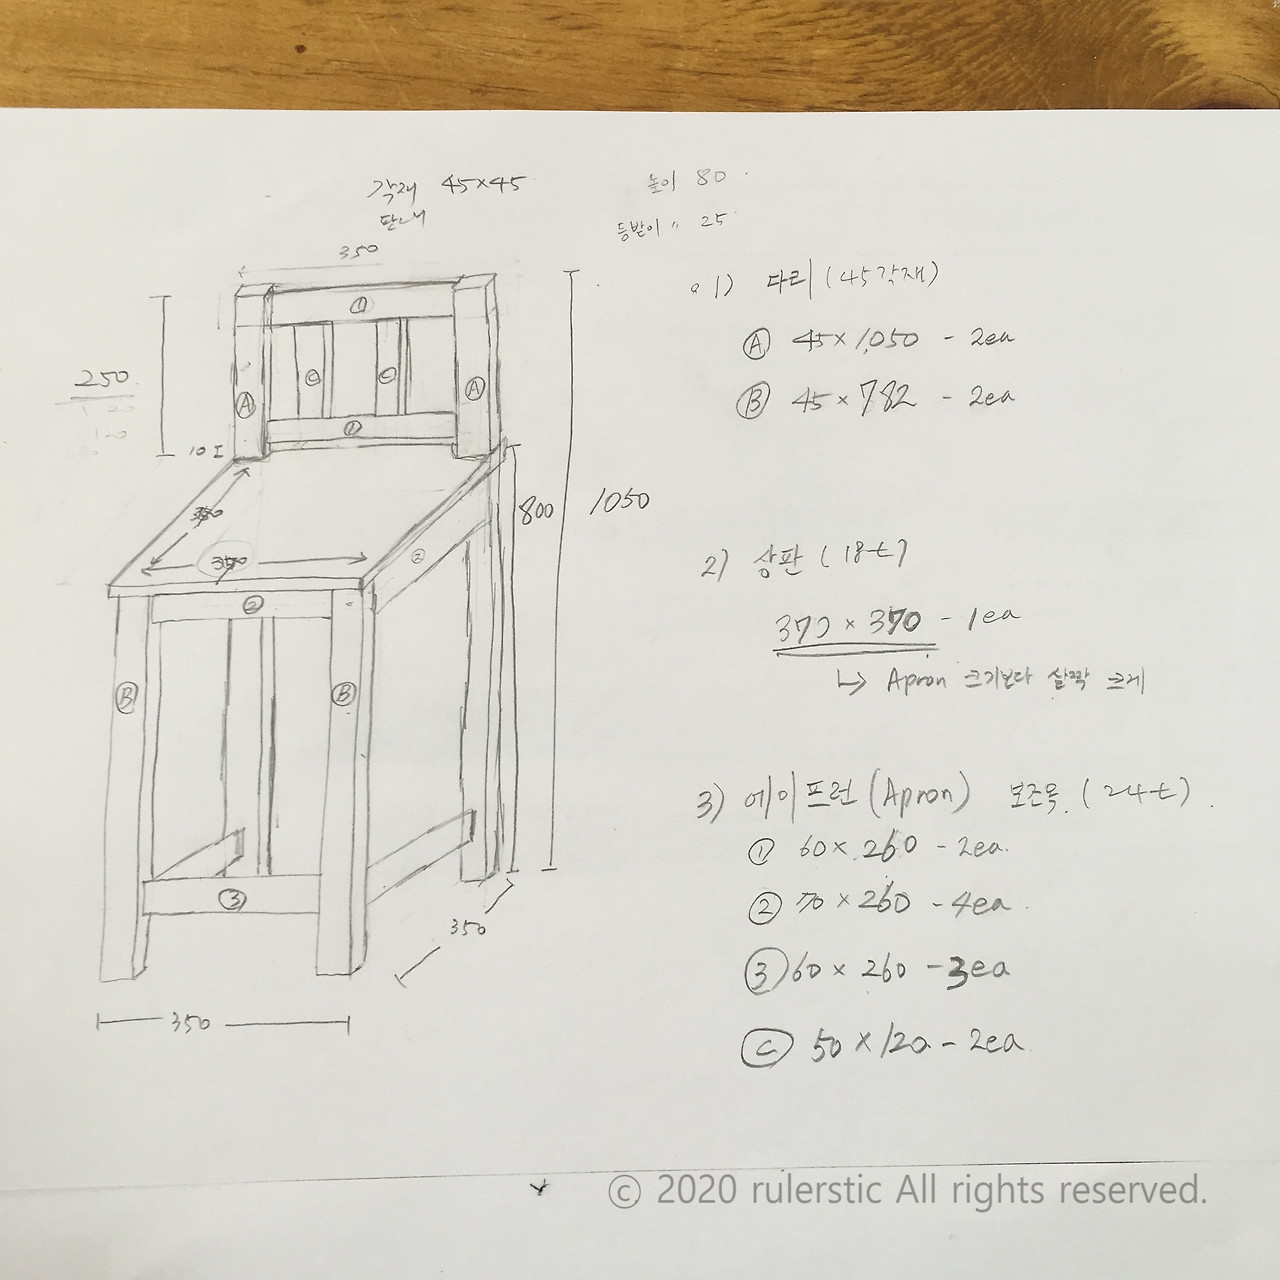 각재 45×45
판재
높이 80
등받이 〃 25
350
250
10
350
350
800
1050
350
350
① 
Ⓒ Ⓒ
Ⓐ Ⓐ
①
②
②
Ⓑ Ⓑ
③
1) 다리 (45각재)
Ⓐ 45×1,050 - 2ea
Ⓑ 45×782 - 2ea
2) 상판 (18t)
370 × 370 - 1ea
↳ Apron 크기보다 살짝 크게
3) 에이프런 (Apron) 보조목. (24t).
① 60×260 - 2ea.
② 70×260 - 4ea.
③ 60×260 - 3ea
Ⓒ 50×120 - 2ea
© 2020 rulerstic All rights reserved.